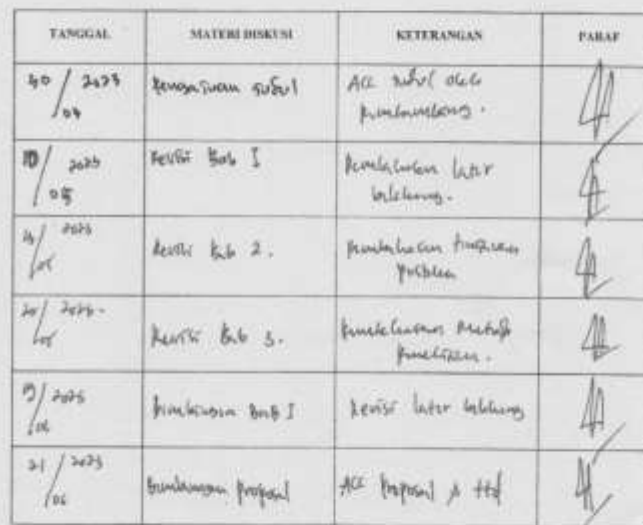 TANGGAL MATERI DISKUSI KETERANGAN PARAF
30/04 2023 Pengajuan Judul ACC Judul oleh
pembimbing.
10/05 2023 Revisi Bab I Pembahasan latar
belakang.
2023
/05 Revisi Bab 2. Pembahasan tinjauan
pustaka
2023.
/05 Revisi Bab 3. Pembahasan Metode
penelitian.
2023
/06 Bimbingan Bab I Revisi latar belakang
21/06 2023 Bimbingan proposal ACC Proposal & ttd